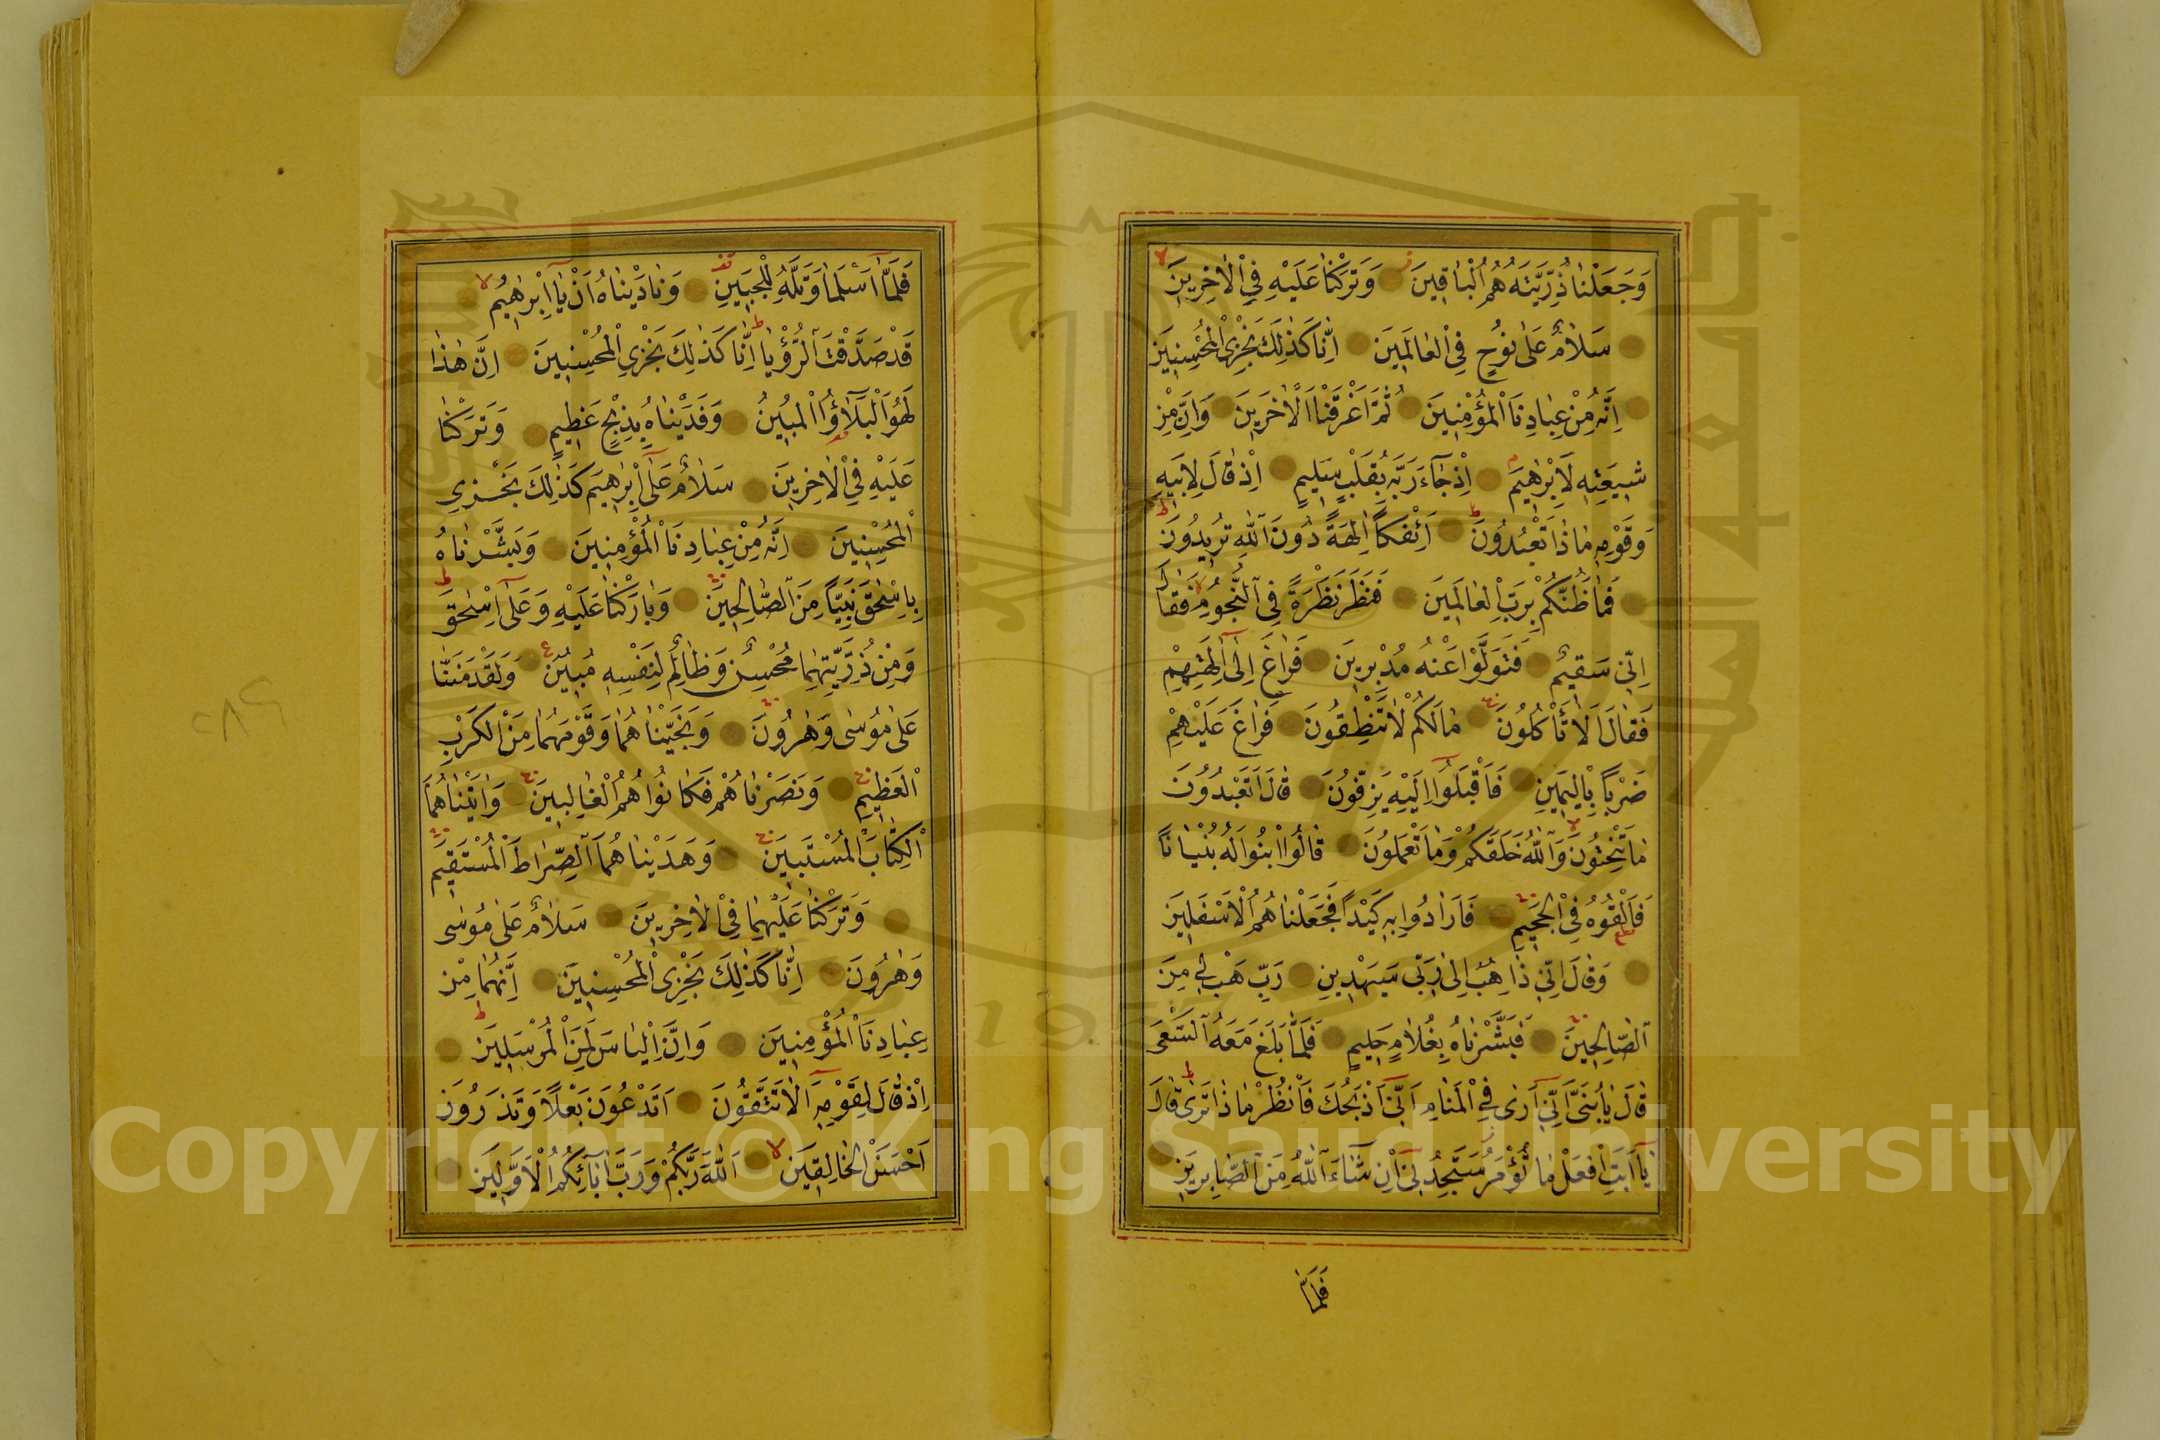 وَجَعَلْنَا ذُرِّيَّتَهُ هُمُ الْبَاقِينَ وَتَرَكْنَا عَلَيْهِ فِي الْاٰخِرِينَ
سَلَامٌ عَلٰى نُوحٍ فِي الْعَالَمِينَ اِنَّا كَذٰلِكَ نَجْزِي الْمُحْسِنِينَ
اِنَّهُ مِنْ عِبَادِنَا الْمُؤْمِنِينَ ثُمَّ اَغْرَقْنَا الْاٰخَرِينَ وَاِنَّ مِنْ
شِيعَتِهِ لَاِبْرٰهِيمَ اِذْ جَاءَ رَبَّهُ بِقَلْبٍ سَلِيمٍ اِذْ قَالَ لِاَبِيهِ
وَقَوْمِهِ مَاذَا تَعْبُدُونَ اَئِفْكًا اٰلِهَةً دُونَ اللّٰهِ تُرِيدُونَ
فَمَا ظَنُّكُمْ بِرَبِّ الْعَالَمِينَ فَنَظَرَ نَظْرَةً فِي النُّجُومِ فَقَالَ
اِنِّي سَقِيمٌ فَتَوَلَّوْا عَنْهُ مُدْبِرِينَ فَرَاغَ اِلٰى اٰلِهَتِهِمْ
فَقَالَ اَلَا تَأْكُلُونَ مَا لَكُمْ لَا تَنْطِقُونَ فَرَاغَ عَلَيْهِمْ
ضَرْبًا بِالْيَمِينِ فَاَقْبَلُوا اِلَيْهِ يَزِفُّونَ قَالَ اَتَعْبُدُونَ
مَا تَنْحِتُونَ وَاللّٰهُ خَلَقَكُمْ وَمَا تَعْمَلُونَ قَالُوا ابْنُوا لَهُ بُنْيَانًا
فَاَلْقُوهُ فِي الْجَحِيمِ فَاَرَادُوا بِهِ كَيْدًا فَجَعَلْنَاهُمُ الْاَسْفَلِينَ
وَقَالَ اِنِّي ذَاهِبٌ اِلٰى رَبِّي سَيَهْدِينِ رَبِّ هَبْ لِي مِنَ
الصَّالِحِينَ فَبَشَّرْنَاهُ بِغُلَامٍ حَلِيمٍ فَلَمَّا بَلَغَ مَعَهُ السَّعْيَ
قَالَ يَا بُنَيَّ اِنِّي اَرٰى فِي الْمَنَامِ اَنِّي اَذْبَحُكَ فَانْظُرْ مَاذَا تَرٰى قَالَ
يَا اَبَتِ افْعَلْ مَا تُؤْمَرُ سَتَجِدُنِي اِنْ شَاءَ اللّٰهُ مِنَ الصَّابِرِينَ
فَلَمَّا
فَلَمَّا اَسْلَمَا وَتَلَّهُ لِلْجَبِينِ وَنَادَيْنَاهُ اَنْ يَا اِبْرٰهِيمُ
قَدْ صَدَّقْتَ الرُّؤْيَا اِنَّا كَذٰلِكَ نَجْزِي الْمُحْسِنِينَ اِنَّ هٰذَا
لَهُوَ الْبَلَاؤُا الْمُبِينُ وَفَدَيْنَاهُ بِذِبْحٍ عَظِيمٍ وَتَرَكْنَا
عَلَيْهِ فِي الْاٰخِرِينَ سَلَامٌ عَلٰى اِبْرٰهِيمَ كَذٰلِكَ نَجْزِي
الْمُحْسِنِينَ اِنَّهُ مِنْ عِبَادِنَا الْمُؤْمِنِينَ وَبَشَّرْنَاهُ
بِاِسْحٰقَ نَبِيًّا مِنَ الصَّالِحِينَ وَبَارَكْنَا عَلَيْهِ وَعَلٰى اِسْحٰقَ
وَمِنْ ذُرِّيَّتِهِمَا مُحْسِنٌ وَظَالِمٌ لِنَفْسِهِ مُبِينٌ وَلَقَدْ مَنَنَّا
عَلٰى مُوسٰى وَهٰرُونَ وَنَجَّيْنَاهُمَا وَقَوْمَهُمَا مِنَ الْكَرْبِ
الْعَظِيمِ وَنَصَرْنَاهُمْ فَكَانُوا هُمُ الْغَالِبِينَ وَاٰتَيْنَاهُمَا
الْكِتَابَ الْمُسْتَبِينَ وَهَدَيْنَاهُمَا الصِّرَاطَ الْمُسْتَقِيمَ
وَتَرَكْنَا عَلَيْهِمَا فِي الْاٰخِرِينَ سَلَامٌ عَلٰى مُوسٰى
وَهٰرُونَ اِنَّا كَذٰلِكَ نَجْزِي الْمُحْسِنِينَ اِنَّهُمَا مِنْ
عِبَادِنَا الْمُؤْمِنِينَ وَاِنَّ اِلْيَاسَ لَمِنَ الْمُرْسَلِينَ
اِذْ قَالَ لِقَوْمِهِ اَلَا تَتَّقُونَ اَتَدْعُونَ بَعْلًا وَتَذَرُونَ
اَحْسَنَ الْخَالِقِينَ اَللّٰهَ رَبَّكُمْ وَرَبَّ اٰبَائِكُمُ الْاَوَّلِينَ
Copyright © King Saud University
1957